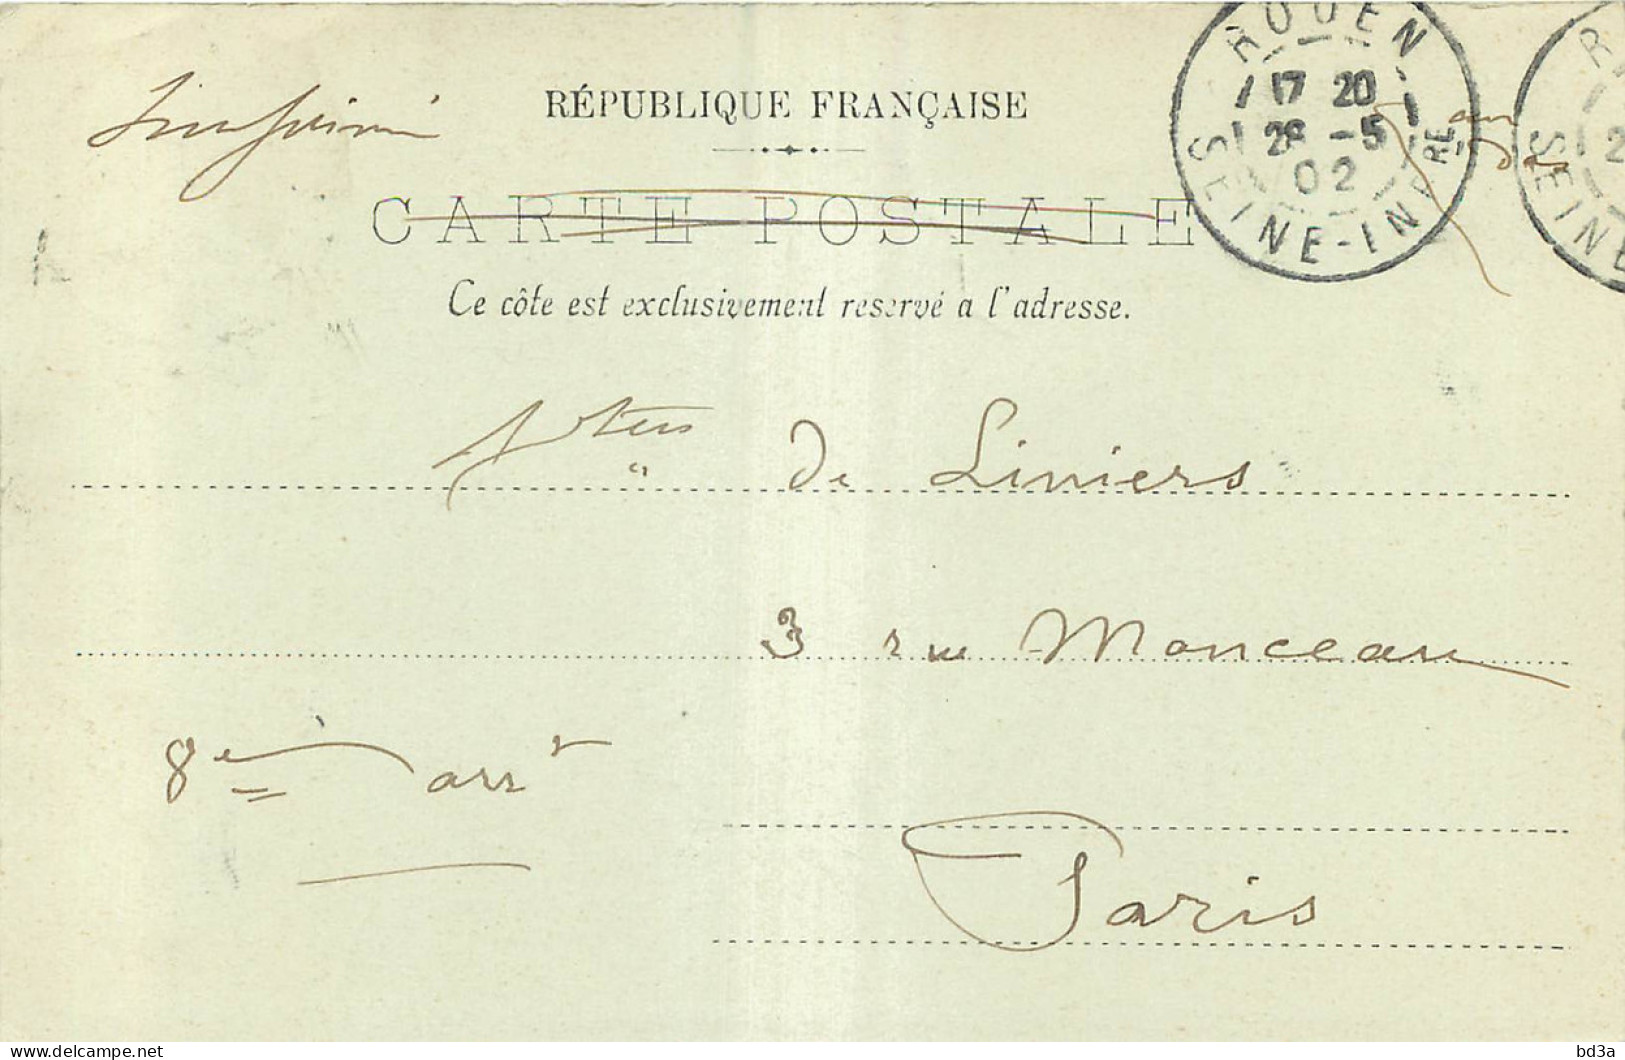 Imprimé
RÉPUBLIQUE FRANÇAISE
CARTE POSTALE
Ce côte est exclusivement reservé a l'adresse.
ROUEN
17 20
28 -5
02
SEINE-INFRE
au
dos
SEINE
de Liniers
3 rue Monceau
8e arrt
Paris
delcampe.net
bd3a